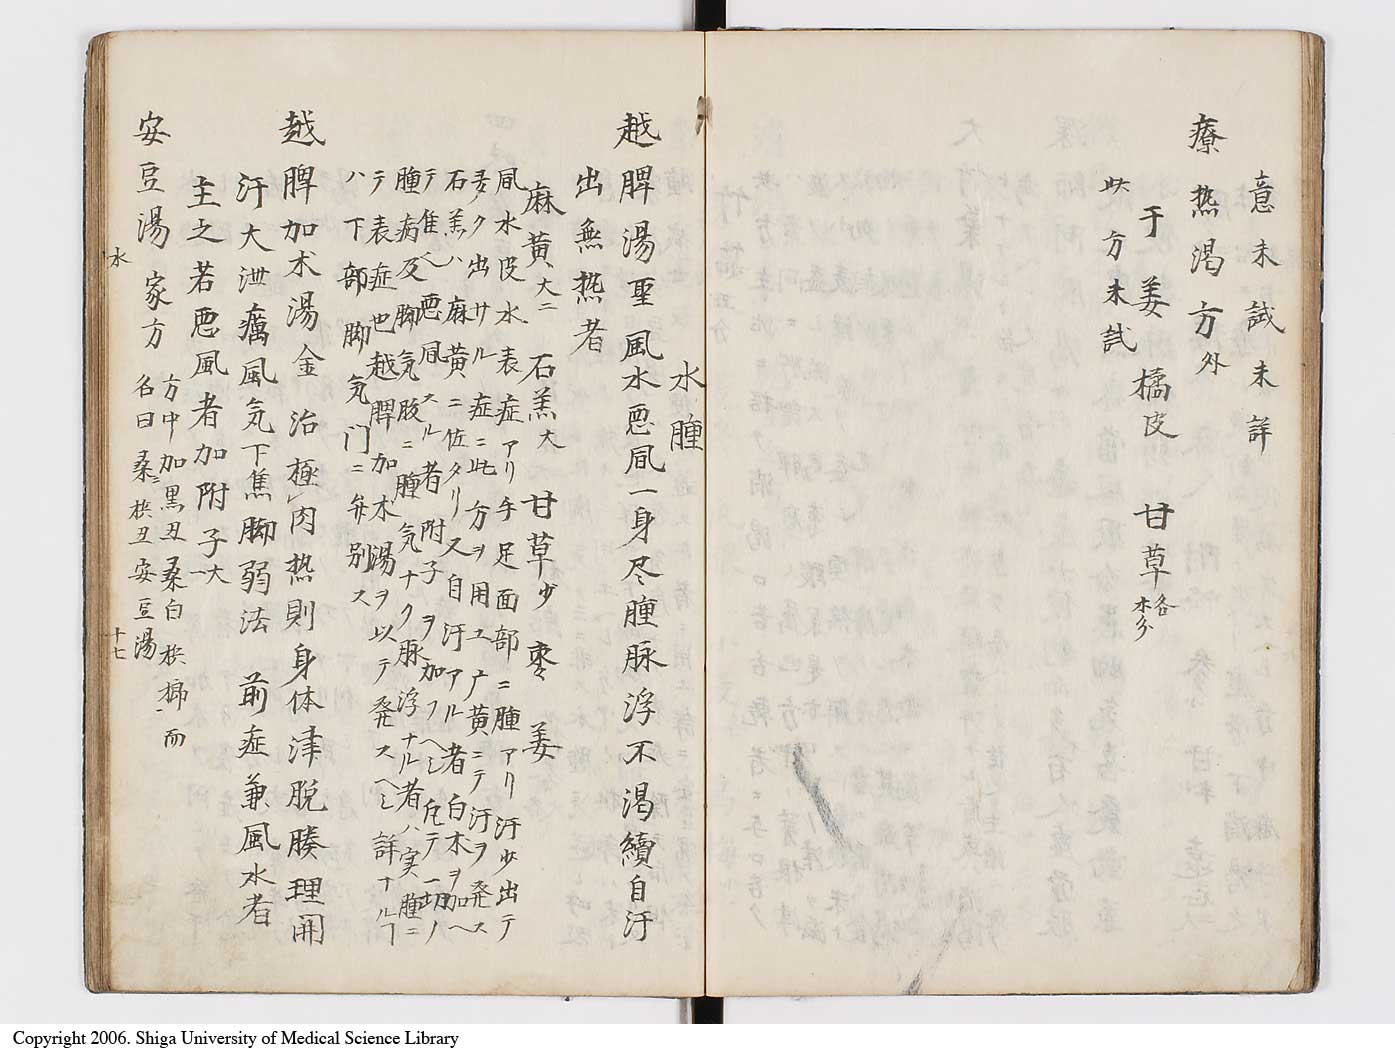 意未試未詳
療热渴方外
干姜 橘皮 甘草各木分
此方未試
水腫
越脾湯聖 風水悪風一身尽腫脉浮不渴續自汗
出無热者
麻黄大二 石羔大 甘草少 棗 姜
風水皮水表症アリ手足面部ニ腫アリ汗少出テ
多ク出サル症ニ此方ヲ用ユ广黄ニテ汗ヲ発ス
石羔ハ麻黄ニ佐タリ又自汗アル者白木ヲ加ヘ
テ隹シ悪風大ル者附子ヲ加フヘシ凢テ一切ノ
腫病及脚気股ニ腫気ナク脉浮ナル者ハ実腫ニ
テ表症也越脾加木湯ヲ以テ発スヘシ詳ナルヿ
ハ下部脚気门ニ弁别ス
越脾加术湯金 治極肉热則身体津脱腠理開
汗大泄癘風気下焦脚弱法 前症兼風水者
主之若悪風者加附子大
安豆湯家方 方中加黒丑桑白梹榔而
名曰桑梹丑安豆湯
水 十七
Copyright 2006. Shiga University of Medical Science Library